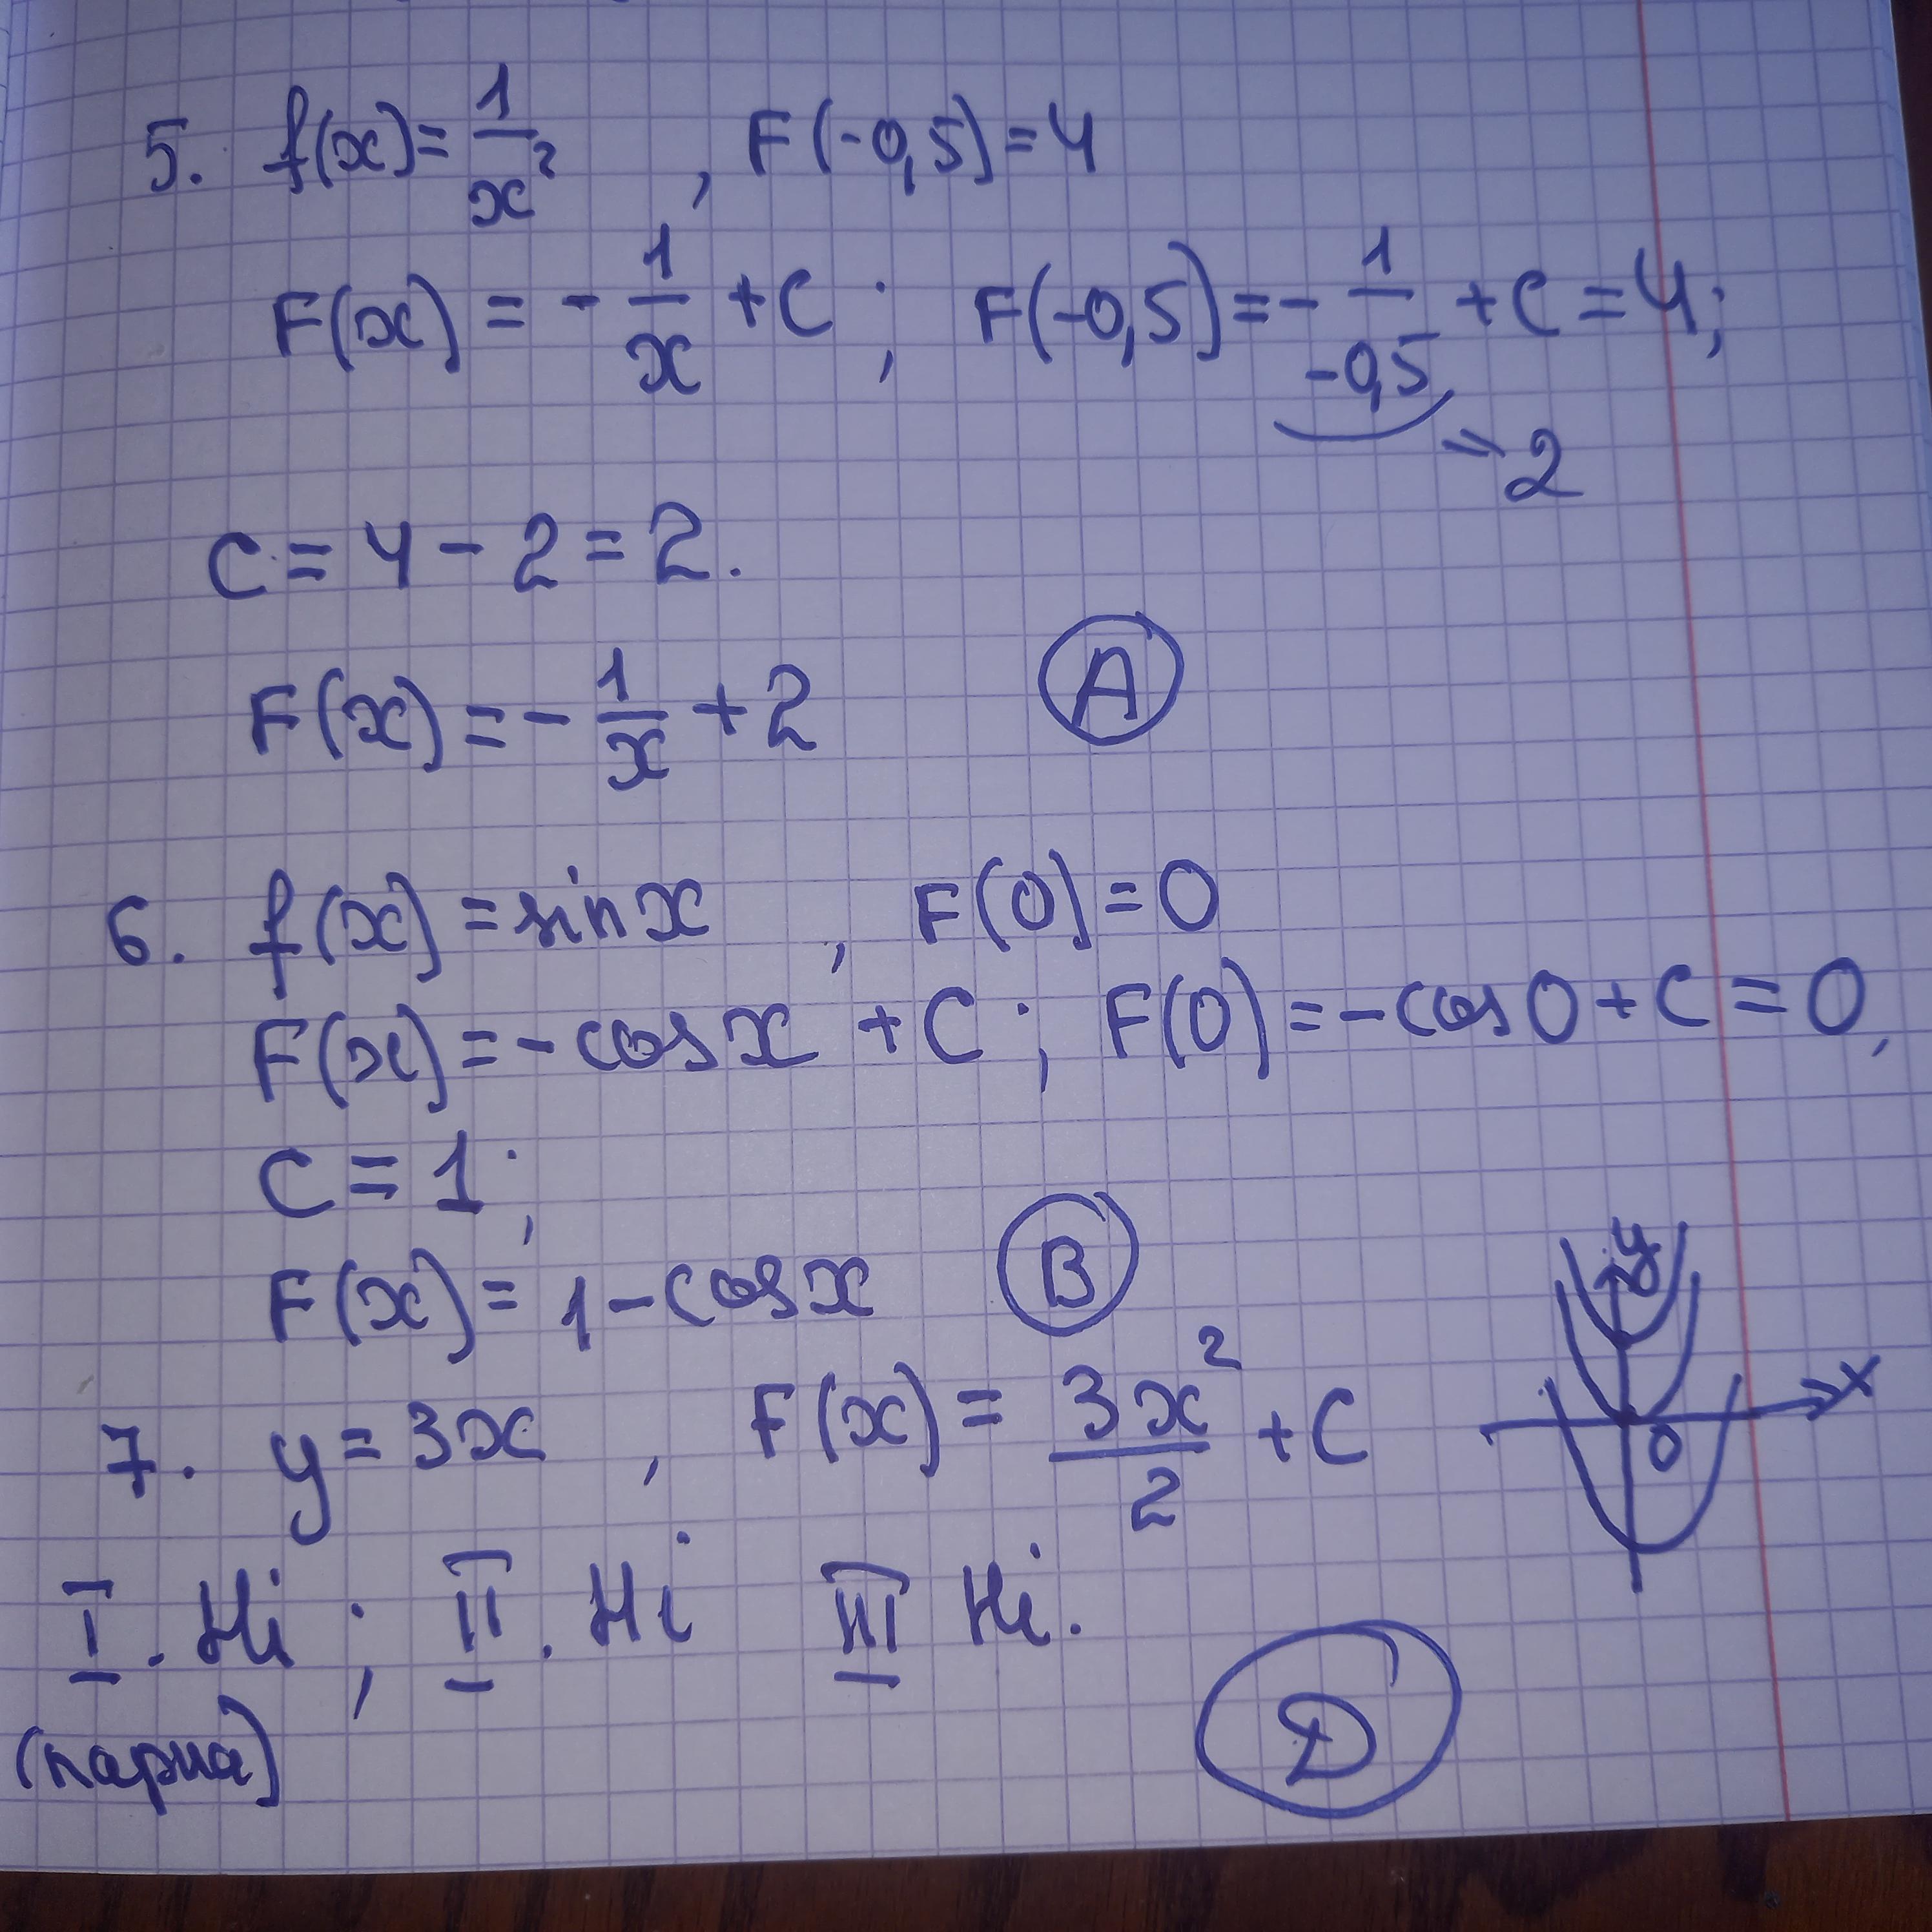 5. f(x) = 1/x² , F(-0,5) = 4
F(x) = - 1/x + C ; F(-0,5) = - 1/-0,5 + C = 4;
= 2
C = 4 - 2 = 2.
F(x) = - 1/x + 2 А
6. f(x) = sin x , F(0) = 0
F(x) = - cos x + C ; F(0) = - cos 0 + C = 0,
C = 1 ;
F(x) = 1 - cos x В
7. y = 3x , F(x) = 3x²/2 + C
y
x
0
I. Ні ; II. Ні III Ні.
(парна)
Д